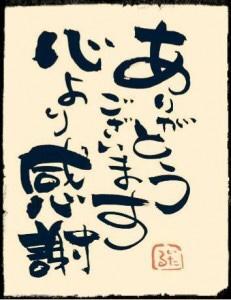 ありがとう
ございます
心より感謝